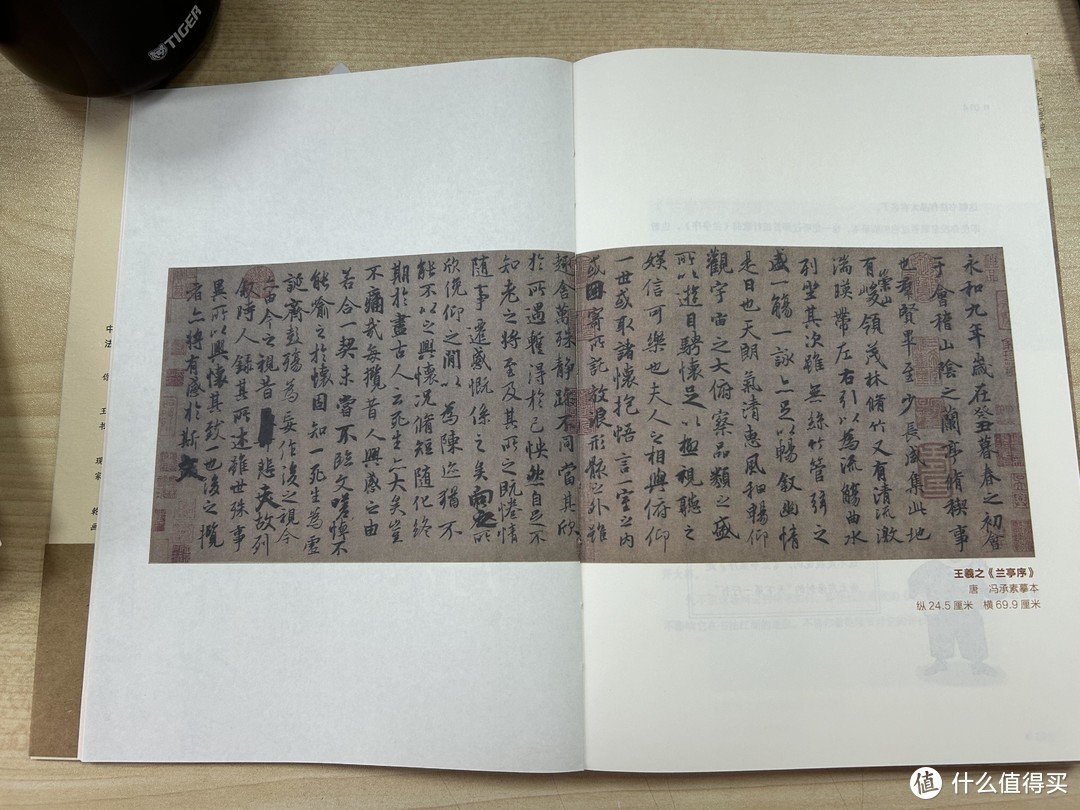 TIGER
永和九年歲在癸丑暮春之初會
于會稽山陰之蘭亭脩稧事
也羣賢畢至少長咸集此地
有崇山峻領茂林脩竹又有清流激
湍暎帶左右引以為流觴曲水
列坐其次雖無絲竹管弦之
盛一觴一詠亦足以暢敘幽情
是日也天朗氣清惠風和暢仰
觀宇宙之大俯察品類之盛
所以遊目騁懷足以極視聽之
娛信可樂也夫人之相與俯仰
一世或取諸懷抱悟言一室之內
或因寄所託放浪形骸之外雖
趣舍萬殊靜躁不同當其欣
於所遇暫得於己怏然自足不
知老之將至及其所之既惓情
隨事遷感慨係之矣向之所
欣俛仰之閒以為陳迹猶不
能不以之興懷況脩短隨化終
期於盡古人云死生亦大矣豈
不痛哉每攬昔人興感之由
若合一契未嘗不臨文嗟悼不
能喻之於懷固知一死生為虛
誕齊彭殤為妄作後之視今
亦由今之視昔悲夫故列
敘時人錄其所述雖世殊事
異所以興懷其致一也後之攬
者亦將有感於斯文
王羲之《兰亭序》
唐 冯承素摹本
纵 24.5 厘米 横 69.9 厘米
值 什么值得买